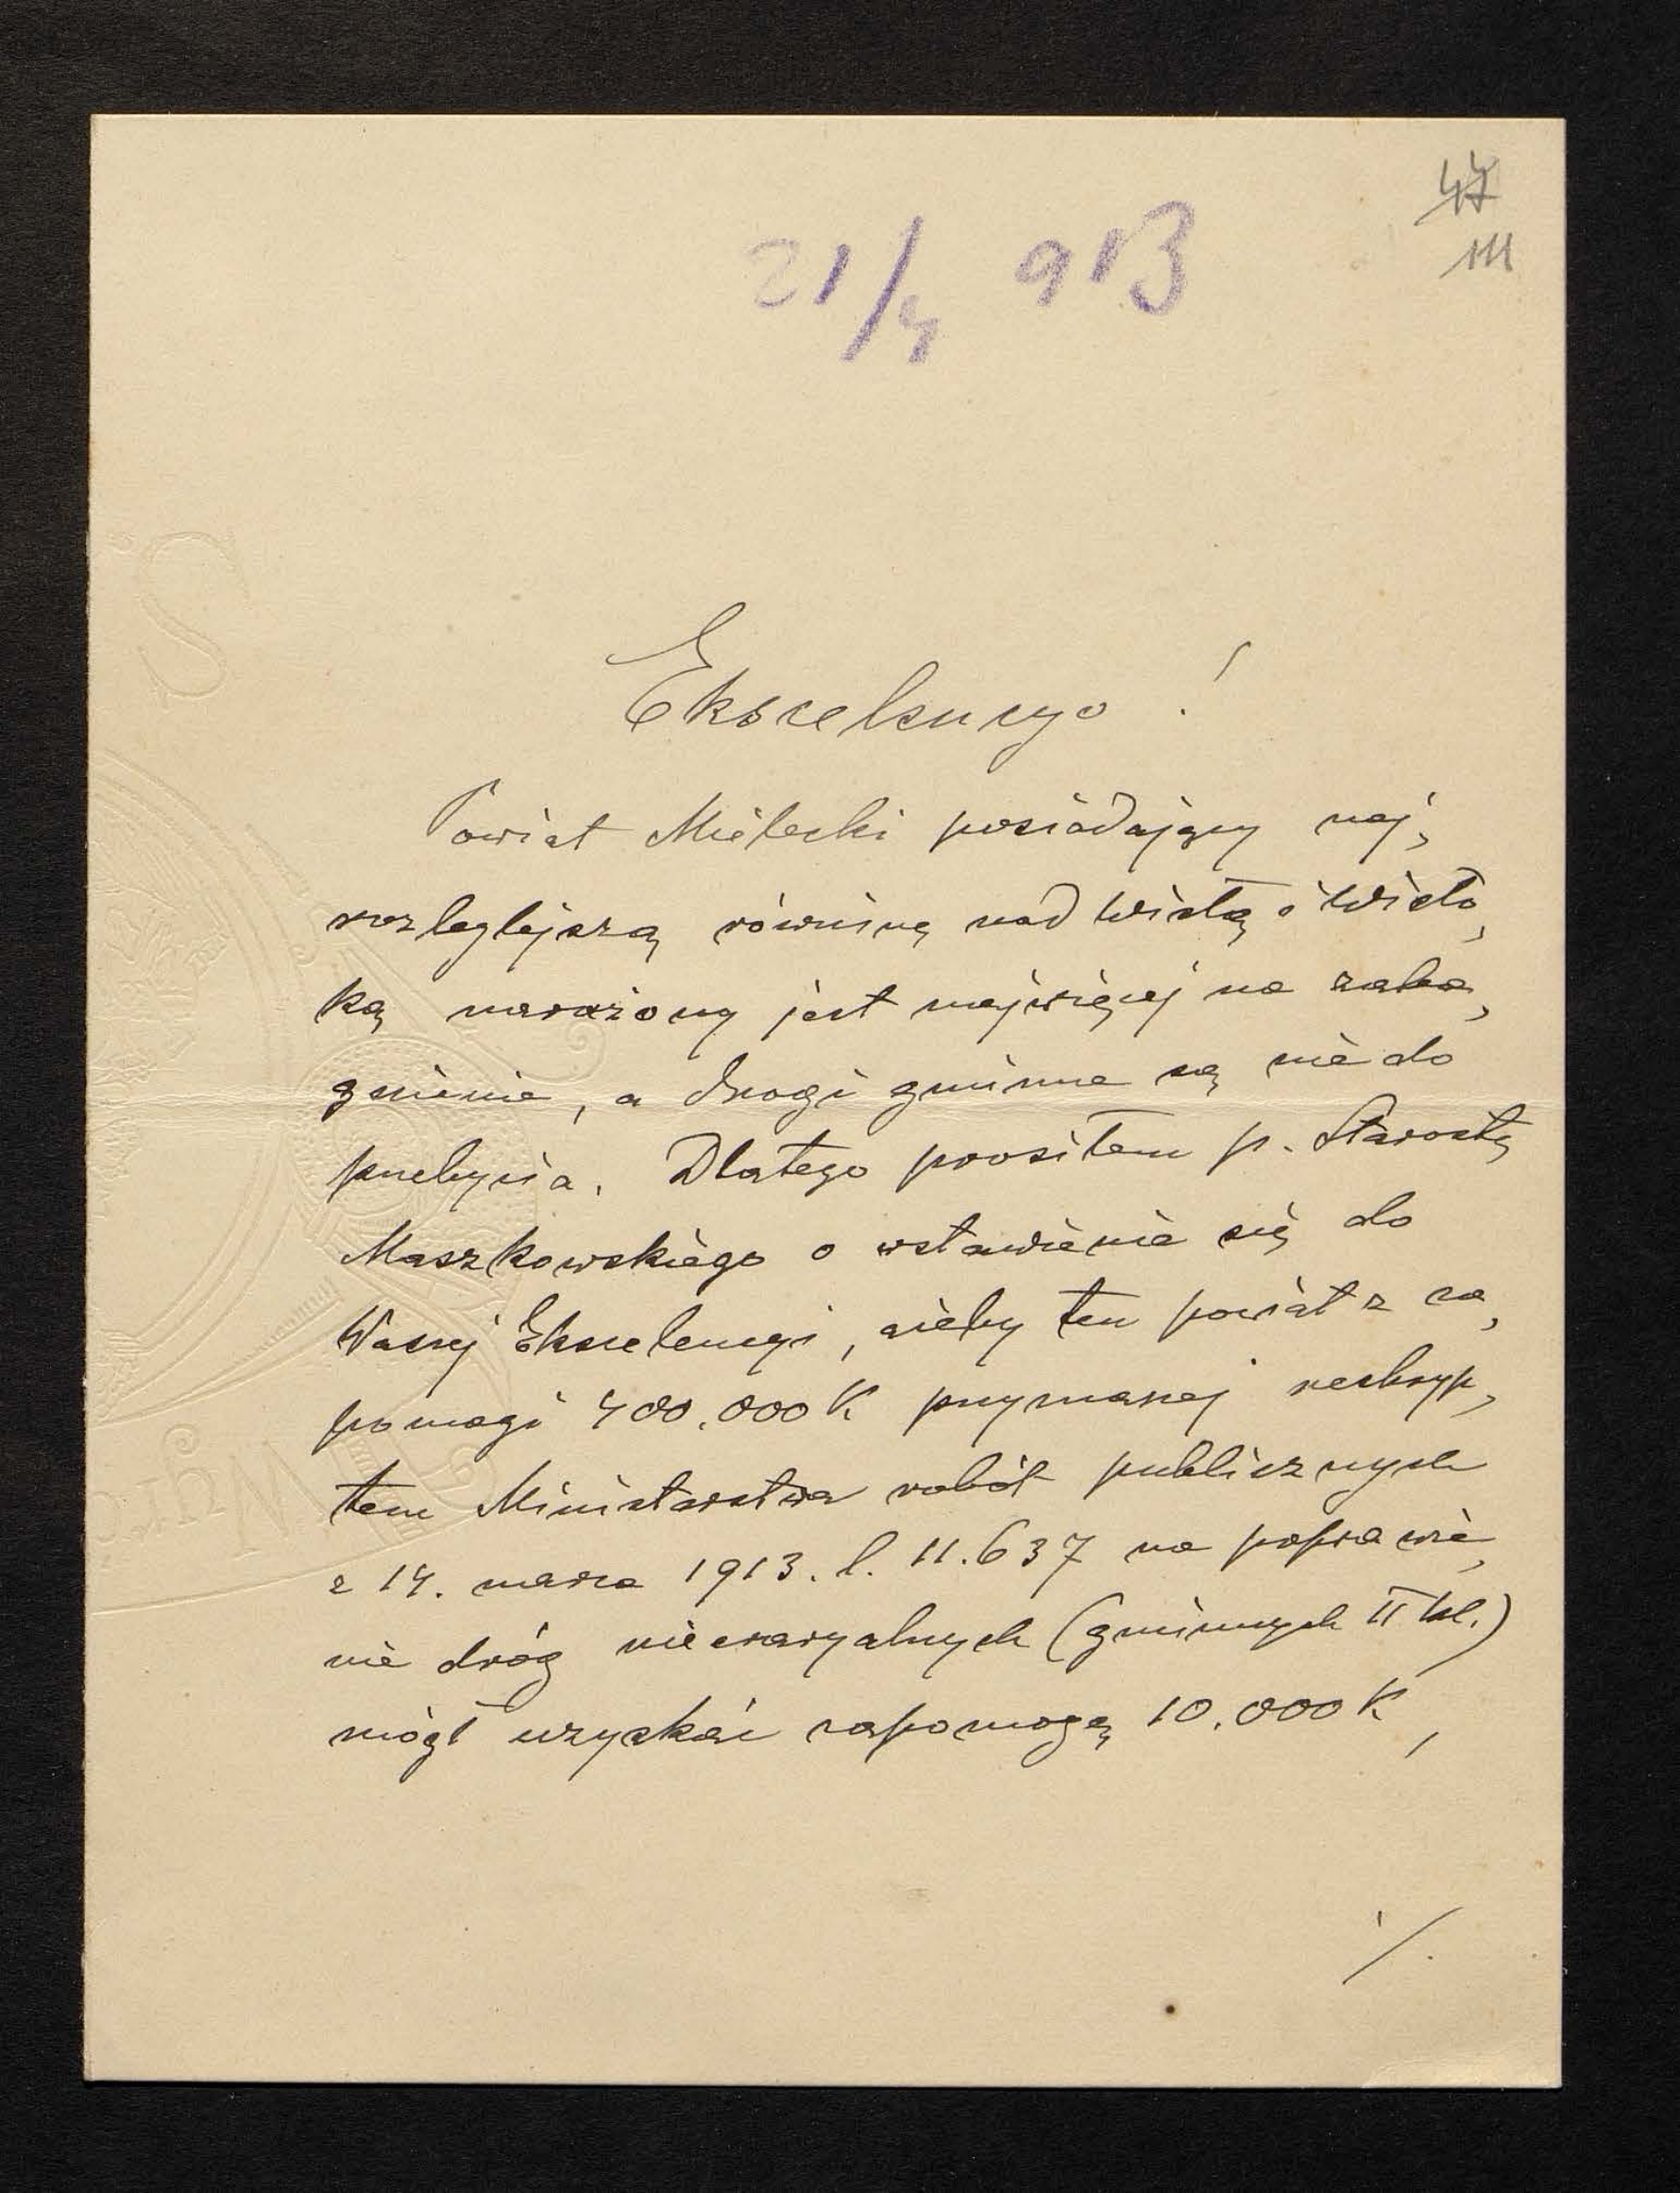 47
111
21/4 913
Ekscelencyo!
Powiat Mielecki posiadający naj„
rozleglejszą równinę nad Wisłą i Wisło„
ką narażony jest najwięcej na zaba„
gnienie, a drogi gminne są nie do
przebycia. Dlatego prosiłem p. Starostę
Maszkowskiego o wstawienie się do
Waszej Ekscelencyi, ażeby ten powiat z za„
pomogi 400.000 K przyznanej reskryp„
tem Ministerstwa robót publicznych
z 14. marca 1913. l. 11.637 na poprawie„
nie dróg nieeraryalnych (gminnych II kl.)
mógł uzyskać zapomogę 10.000 K,
./.